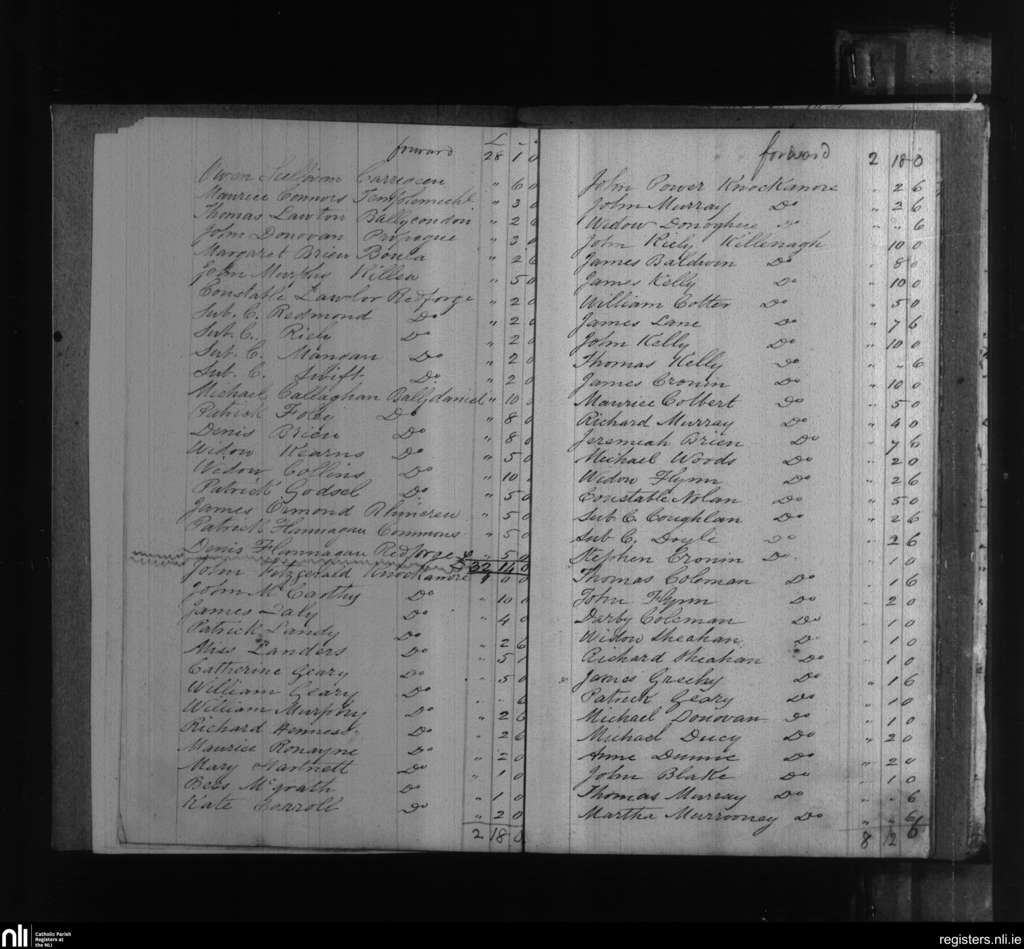 forward £ 28 1 0
Owen Sullivan " 6 0
Maurice Connors " 3 0
Thomas Lawton Ballycondon " 2 6
John Donovan " 3 0
Margaret Brien " 2 6
John Murphy Killea " 5 0
Constable Lawlor Redforge " 2 0
Sub. C. Redmond Do " 2 0
Sub. C. Riely Do " 2 0
Sub. C. Mangan Do " 2 0
Sub. C. Swift Do " 2 0
Michael Callaghan Ballydaniel " 10 0
Patrick Foley Do " 8 0
Denis Brien Do " 8 0
Widow Kearns Do " 5 0
Widow Collins Do " 10
Patrick Godsel Do " 5 0
James Ormond " 5 0
Patrick Flannagan Commons " 5 0
Denis Flannagan Redforge " 5 0
£ 32 14 0
John Fitzgerald Knockanore 1 0 0
John McCarthy Do " 10 0
James Daly Do " 4 0
Patrick Landy Do " 2 6
Miss Landers Do " 5 1
Catherine Geary Do " 5 0
William Geary Do " " 6
William Murphy Do " 2 6
Richard Do " 2 6
Maurice Ronayne Do " 2 0
Mary Hartnett Do " 1 0
Bess McGrath Do " 1 0
Kate Carroll Do " 2 0
2 18 0
forward 2 18 0
John Power Knockanore " 2 6
John Murray Do " 2 6
Widow Donoghue " " " 6
John Kiely Killenagh 10 0
James Baldwin Do " 8 0
James Kelly Do " 10 0
William Cotter Do " 5 0
James Lane Do " 7 6
John Kelly Do " 10 0
Thomas Kelly Do " " 6
James Cronin Do " 10 0
Maurice Colbert Do " 5 0
Richard Murray Do " 4 0
Jeremiah Brien Do " 7 6
Michael Woods Do " 2 0
Widow Flynn Do " 2 6
Constable Nolan Do " 5 0
Sub C. Coughlan Do " 2 6
Sub C. Doyle Do " 2 6
Stephen Cronin Do " 1 0
Thomas Coleman Do " 1 6
John Flynn Do " 2 0
Darby Coleman Do " 1 0
Widow Sheahan Do " 1 0
Richard Sheahan Do " 1 0
James Greehy Do " 1 6
Patrick Geary Do " 1 0
Michael Donovan Do " 1 0
Michael Ducy Do " 2 0
Anne Dunne Do " 2 0
John Blake Do " 1 0
Thomas Murray Do " " 6
Martha Murrooney Do " " 6
8 12 6
nli Catholic Parish
Registers at
the NLI
registers.nli.ie